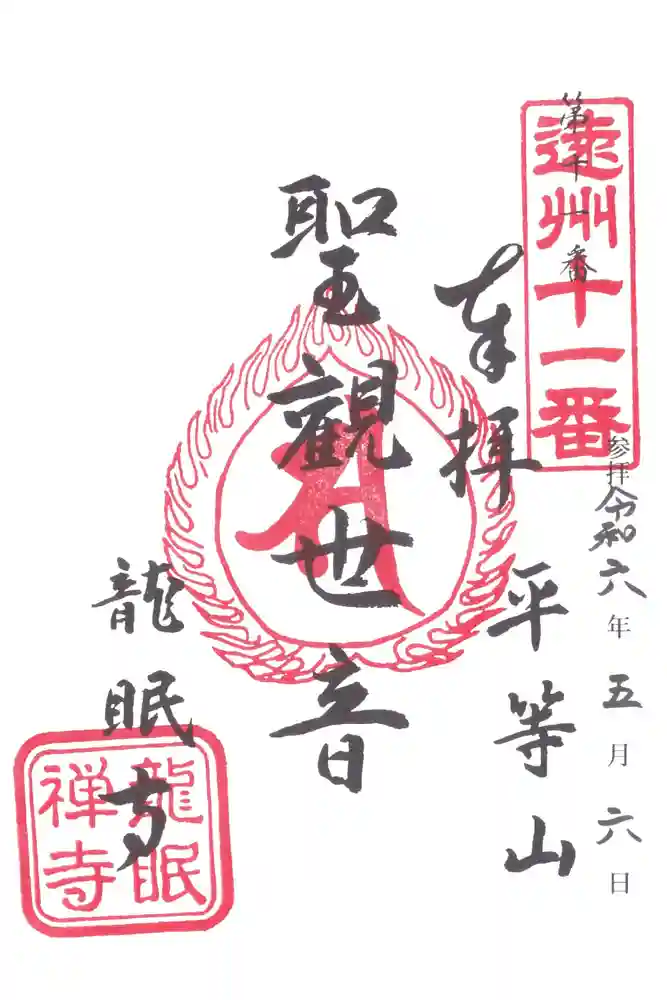 参拝令和六年五月六日
第十一番
遠州十一番
奉拝 平等山
聖観世音
龍眠寺
龍眠
禅寺